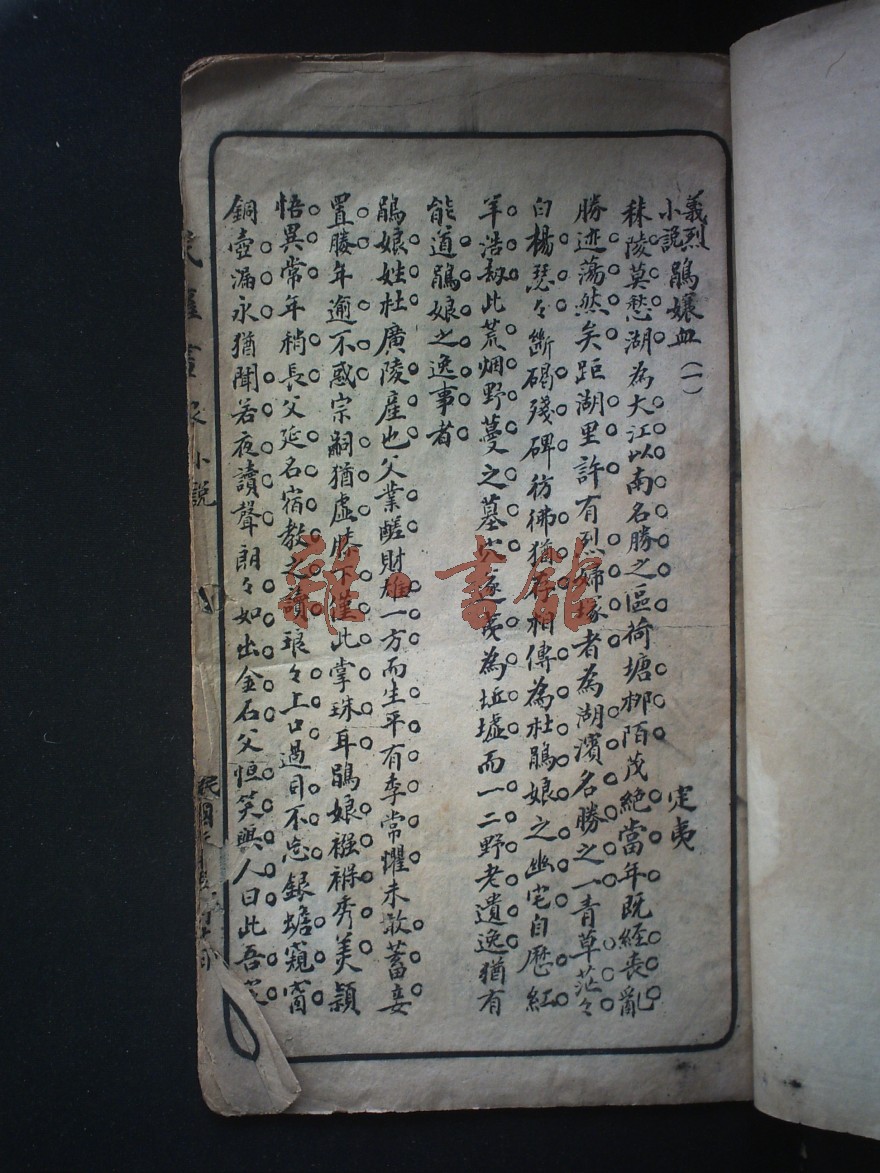 義烈小說 鵑娘血（一）
定夷
秣陵莫愁湖為大江以南名勝之區荷塘柳陌茂絕當年既經喪亂
勝迹蕩然矣距湖里許有烈婦塚者為湖濱名勝之一青草茫々
白楊瑟々斷碣殘碑彷彿猶存相傳為杜鵑娘之幽宅自歷紅
羊浩劫此荒烟野蔓之墓遂茂為坵墟而一二野老遺逸猶有
能道鵑娘之逸事者
鵑娘姓杜廣陵產也父業鹺財雄一方而生平有季常懼未敢蓄妾
置媵年逾不惑宗嗣猶虛膝下僅此掌珠耳鵑娘襁褓秀美穎
悟異常年稍長父延名宿教之讀琅々上口過目不忘銀蟾窺窗
銅壺漏永猶聞若夜讀聲朗々如出金石父恒笑與人曰此吾
小說
民國
雜書館